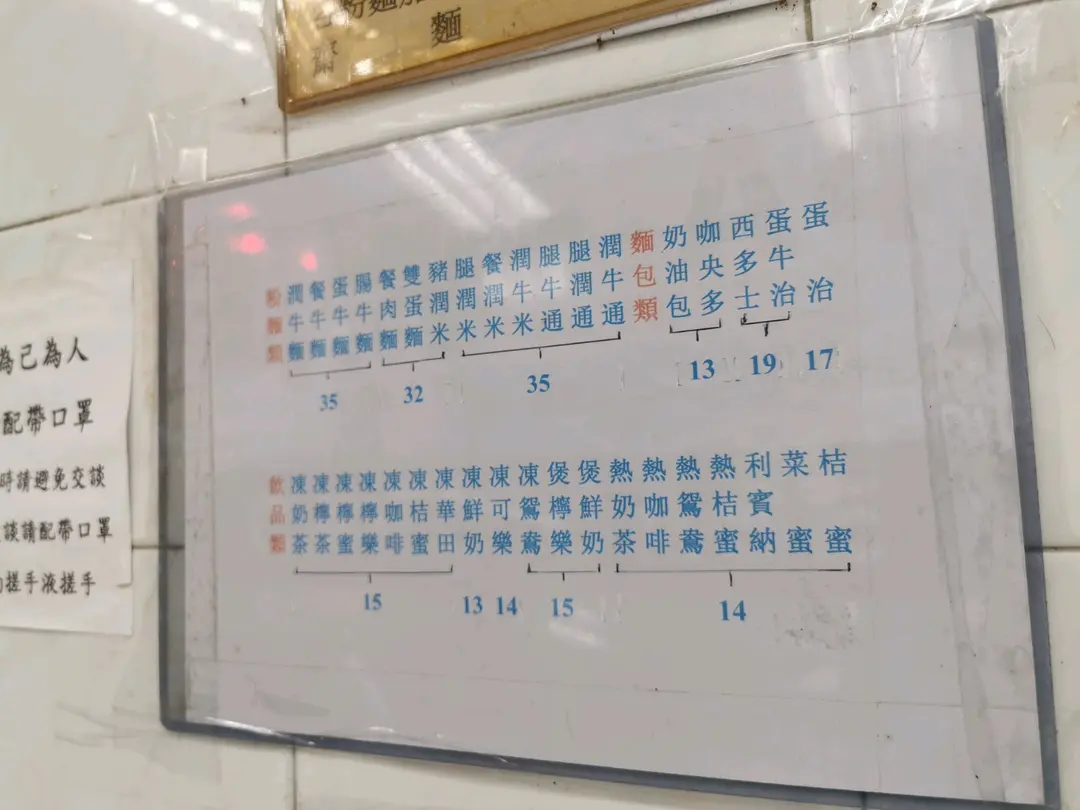 粉麵
麵
為己為人
配帶口罩
時請避免交談
談請配帶口罩
搓手液搓手
粉麵類
潤牛麵
餐牛麵
蛋牛麵
腸牛麵
35
餐肉麵
雙蛋麵
豬潤米
32
腿潤米
餐潤米
潤牛米
腿牛通
腿潤通
潤牛通
35
麵包類
奶油包
咖央多
13
西多士
蛋牛治
19
蛋治
17
飲品類
凍奶茶
凍檸茶
凍檸蜜
凍檸樂
凍咖啡
凍桔蜜
凍華田
15
凍鮮奶
13
凍可樂
14
凍鴛鴦
煲檸樂
煲鮮奶
15
熱奶茶
熱咖啡
熱鴛鴦
熱桔蜜
利賓納
菜蜜
桔蜜
14